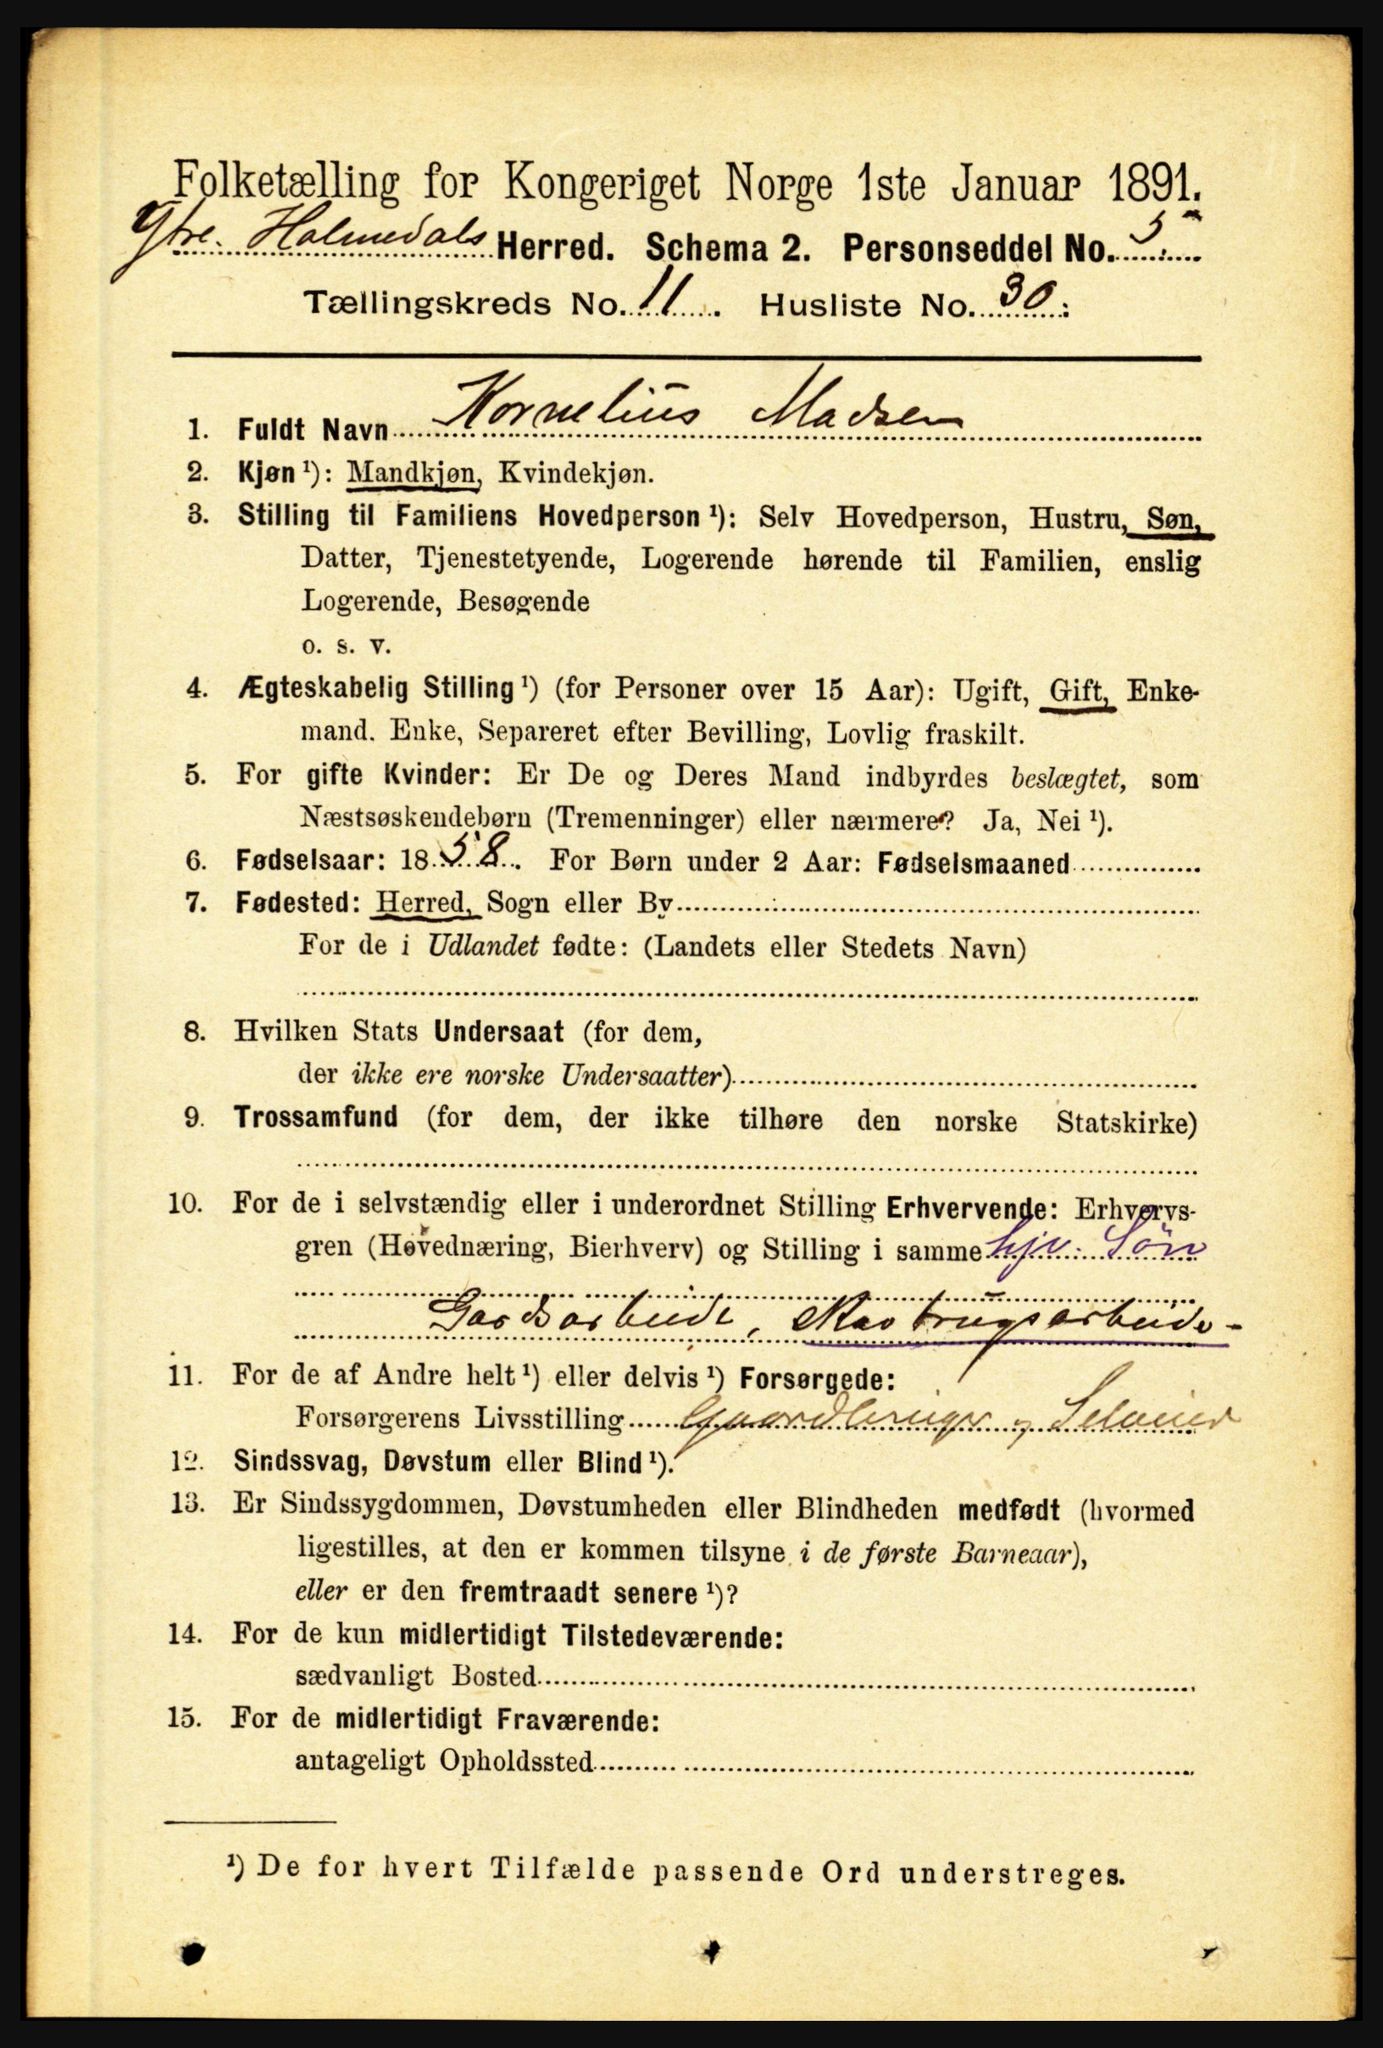 Folketælling for Kongeriget Norge 1ste Januar 1891.
Ytre Holmedals Herred. Schema 2. Personseddel No. 5.
Tællingskreds No. 11. Husliste No. 30.
1. Fuldt Navn Kornelius Madsen
2. Kjøn ¹): Mandkjøn, Kvindekjøn.
3. Stilling til Familiens Hovedperson ¹): Selv Hovedperson, Hustru, Søn,
Datter, Tjenestetyende, Logerende hørende til Familien, enslig
Logerende, Besøgende
o. s. v.
4. Ægteskabelig Stilling ¹) (for Personer over 15 Aar): Ugift, Gift, Enke-
mand. Enke, Separeret efter Bevilling, Lovlig fraskilt.
5. For gifte Kvinder: Er De og Deres Mand indbyrdes beslægtet, som
Næstsøskendebørn (Tremenninger) eller nærmere? Ja, Nei ¹).
6. Fødselsaar: 1858. For Børn under 2 Aar: Fødselsmaaned
7. Fødested: Herred, Sogn eller By
For de i Udlandet fødte: (Landets eller Stedets Navn)
8. Hvilken Stats Undersaat (for dem,
der ikke ere norske Undersaatter)
9. Trossamfund (for dem, der ikke tilhøre den norske Statskirke)
10. For de i selvstændig eller i underordnet Stilling Erhvervende: Erhvervs-
gren (Hovednæring, Bierhverv) og Stilling i samme hjv. Søn
Gardsarbeide,
11. For de af Andre helt ¹) eller delvis ¹) Forsørgede:
Forsørgerens Livsstilling Gaardbruger og Seleier
12. Sindssvag, Døvstum eller Blind ¹).
13. Er Sindssygdommen, Døvstumheden eller Blindheden medfødt (hvormed
ligestilles, at den er kommen tilsyne i de første Barneaar),
eller er den fremtraadt senere ¹)?
14. For de kun midlertidigt Tilstedeværende:
sædvanligt Bosted
15. For de midlertidigt Fraværende:
antageligt Opholdssted
¹) De for hvert Tilfælde passende Ord understreges.